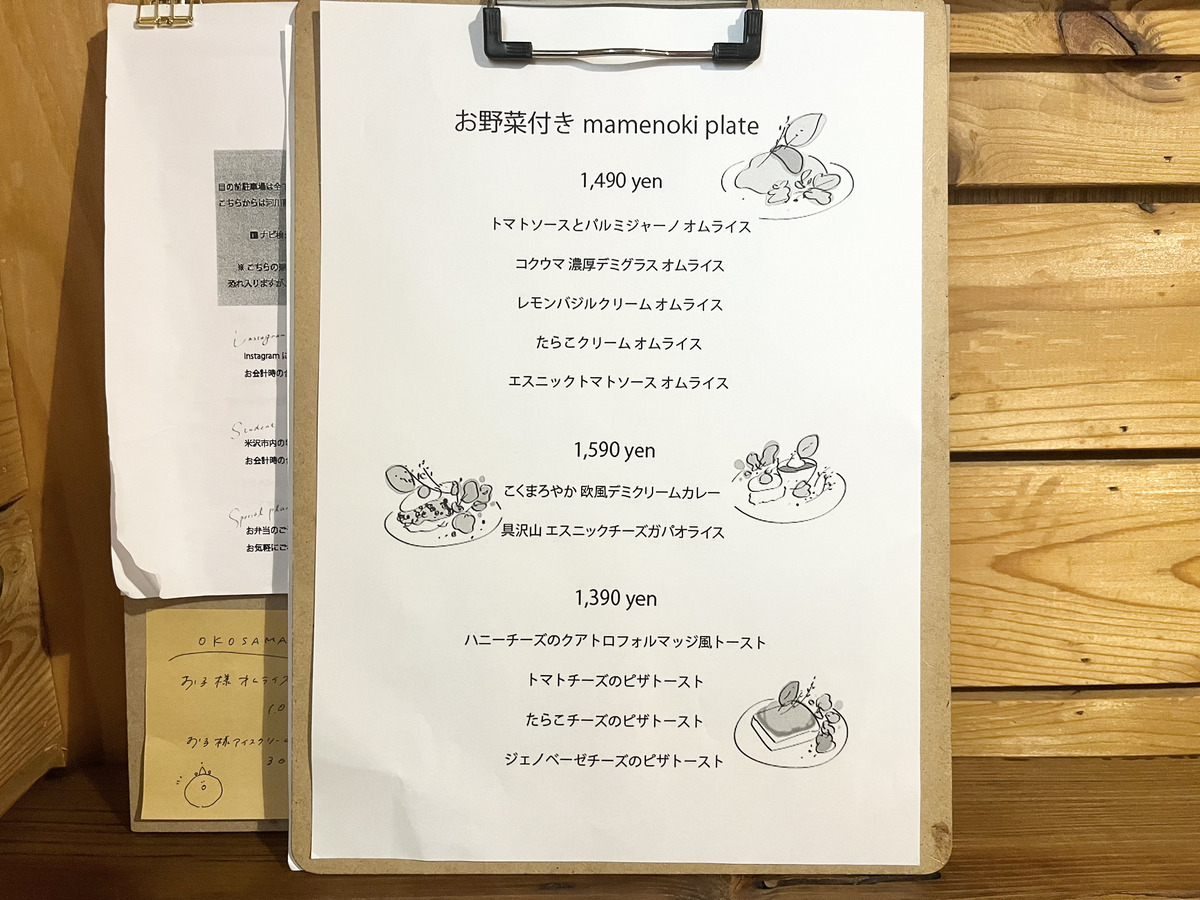 お野菜付き mamenoki plate
1,490 yen
トマトソースとパルミジャーノ オムライス
コクウマ 濃厚デミグラス オムライス
レモンバジルクリーム オムライス
たらこクリーム オムライス
エスニックトマトソース オムライス
1,590 yen
こくまろやか 欧風デミクリームカレー
具沢山 エスニックチーズガパオライス
1,390 yen
ハニーチーズのクアトロフォルマッジ風トースト
トマトチーズのピザトースト
たらこチーズのピザトースト
ジェノベーゼチーズのピザトースト
目の前駐車場は全て
こちらからは河川
ナビ検
※ こちらの
恐れ入りますが
Instagram
Instagram に
お会計時の
Student
米沢市内の
お会計時の
Special
お弁当のご
お気軽にご
OKOSAMA
お子様 オムライス
お子様アイスクリーム